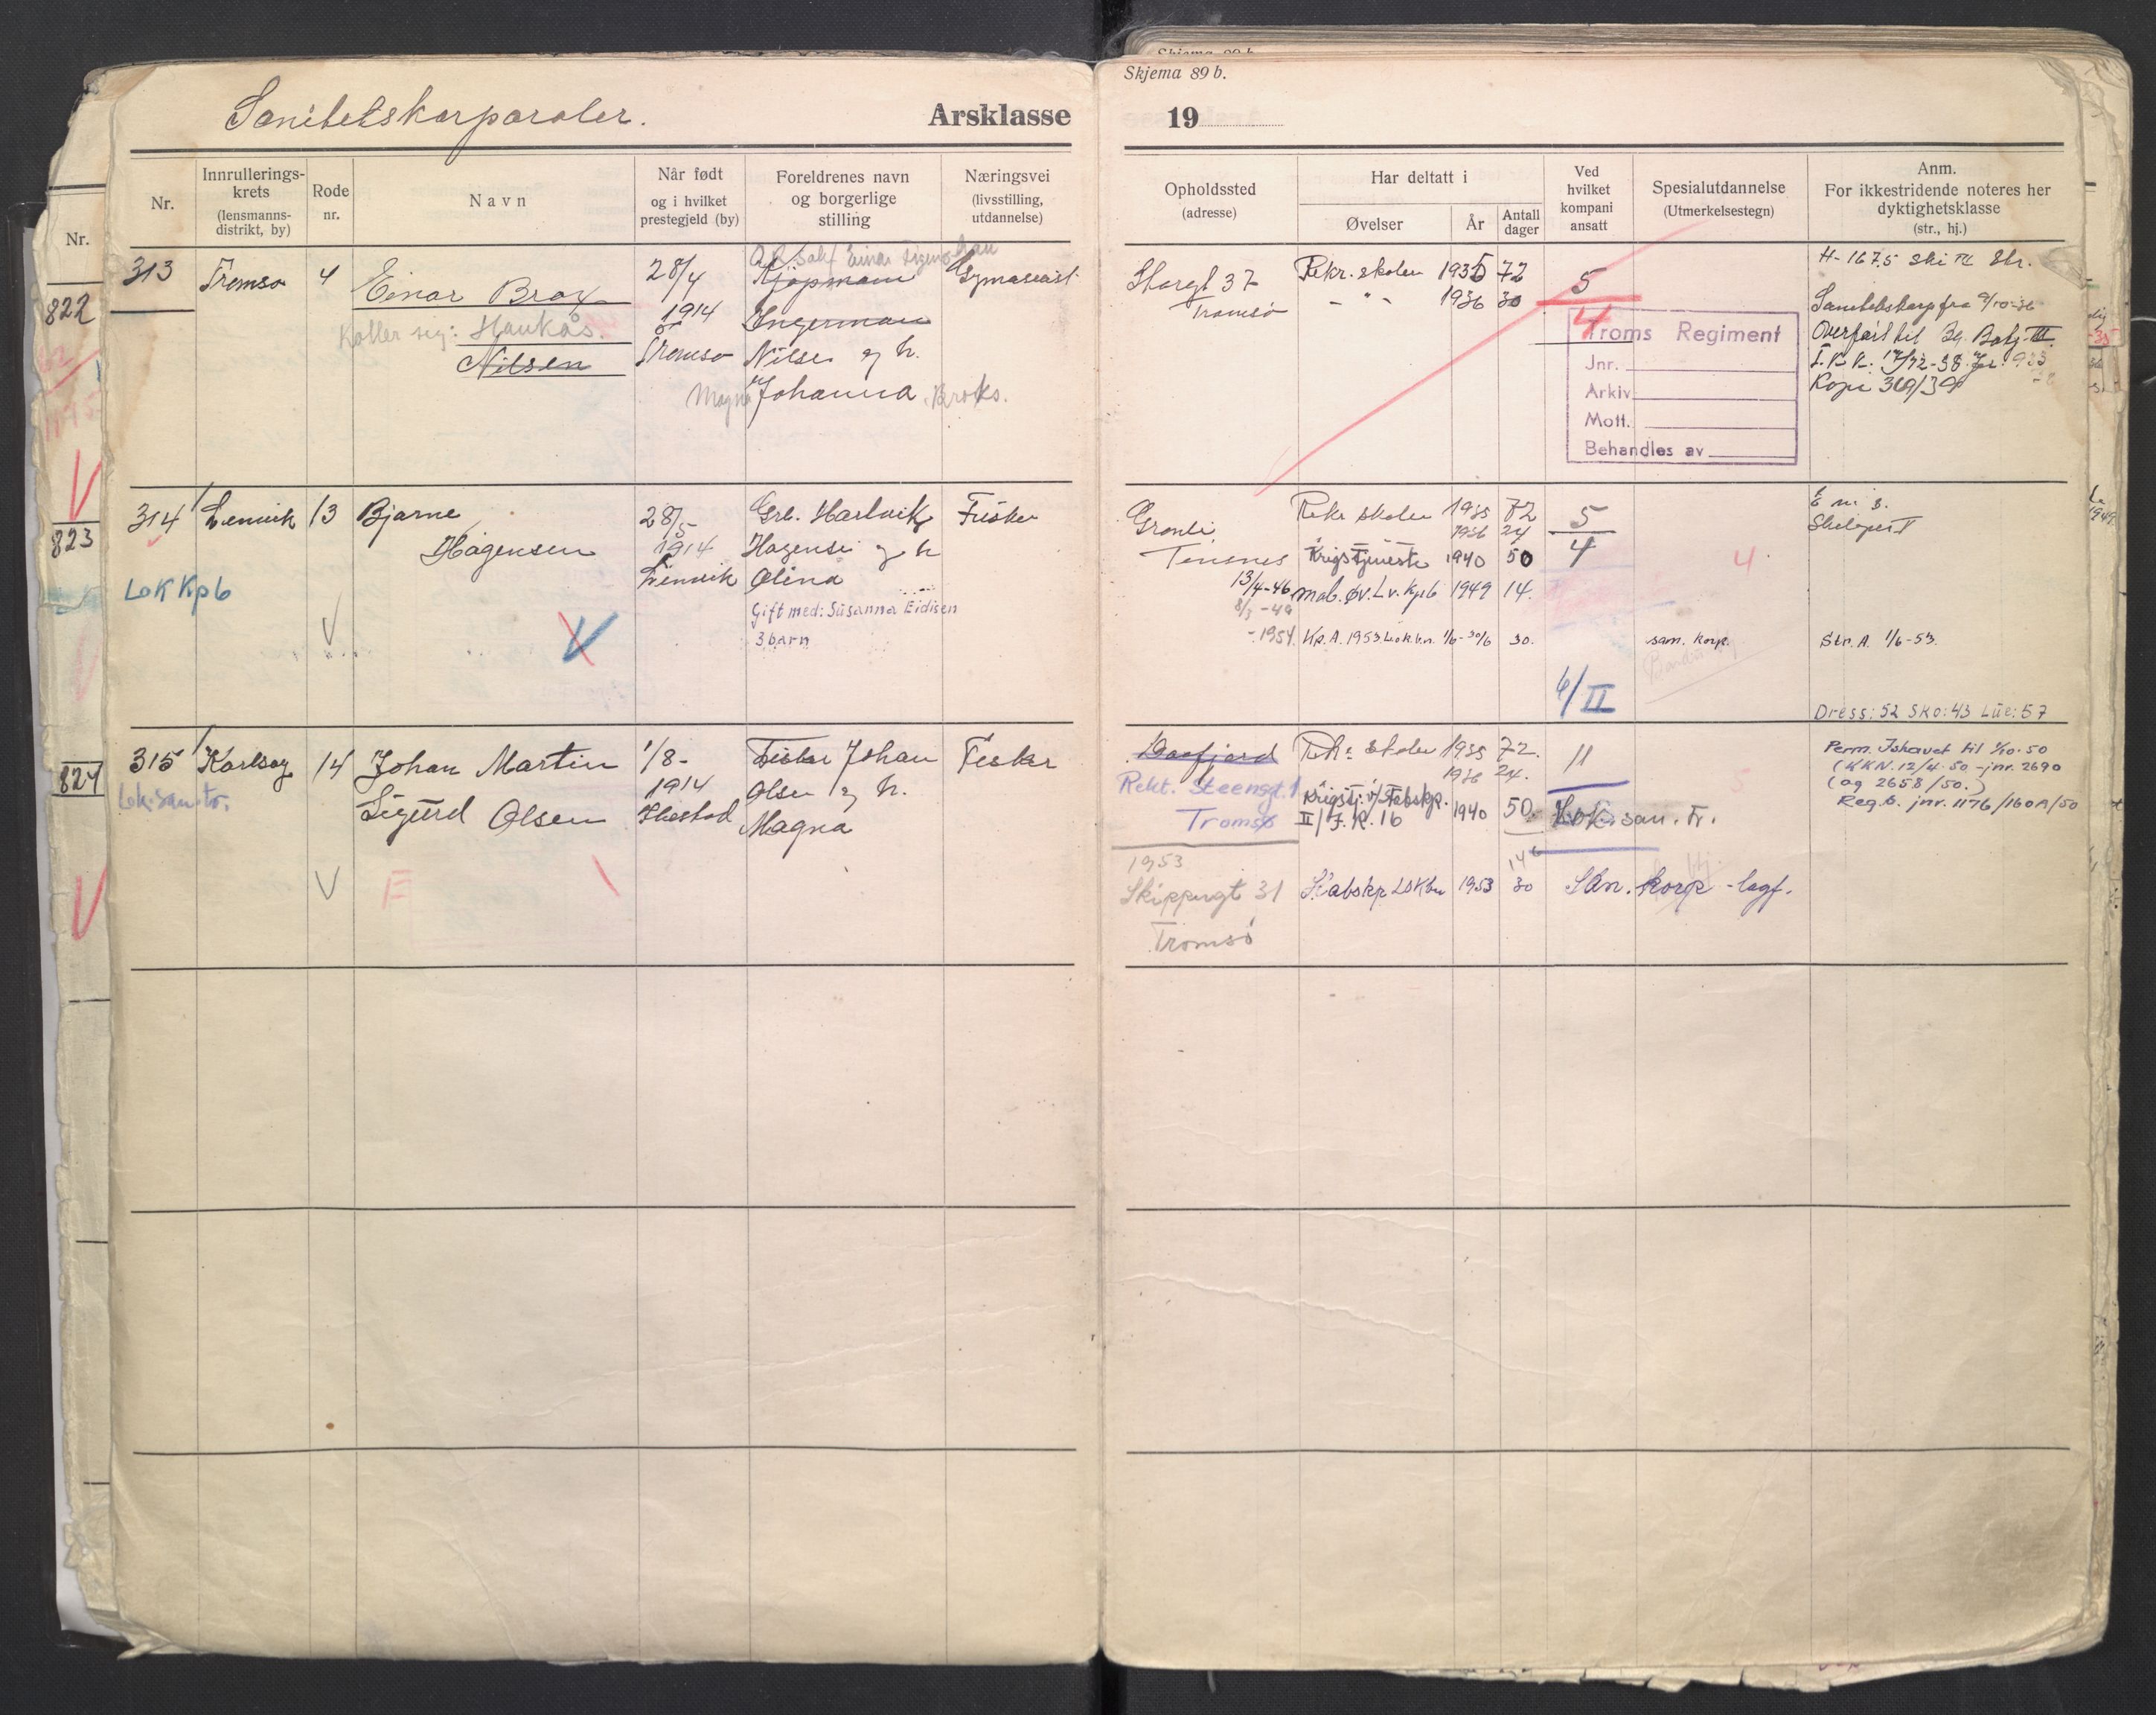 Sanitetskorporaler.
Årsklasse
Nr.
Innrullerings-
krets
(lensmanns-
distrikt, by)
Rode
nr.
Navn
Når født
og i hvilket
prestegjeld (by)
Foreldrenes navn
og borgerlige
stilling
Næringsvei
(livsstilling,
utdannelse)
313
Tromsø
4
Einar Brox
Kaller sig: Haukås.
Nilsen
28/4
1914
Tromsø
Kjøpmann
Ingerman
Nilsen og h.
Magna Johanna Broks.
Gymnasiast
314
Lenvik
13
Bjarne
Hagensen
28/5
1914
Lenvik
Grb. Hartvik
Hagensen og h
Olina
Gift med: Susanna Eidisen
3 barn
Fisker
Lok Kp 6
315
Karlsøy
14
Johan Martin
Sigurd Olsen
1/8-
1914
Fisker Johan
Olsen og h.
Magna
Fisker
Lok.san.tr.
F
Nr.
822
823
824
Skjema 89 b.
19
Opholdssted
(adresse)
Har deltatt i
Øvelser
År
Antall
dager
Ved
hvilket
kompani
ansatt
Spesialutdannelse
(Utmerkelsestegn)
Anm.
For ikkestridende noteres her
dyktighetsklasse
(str., hj.)
Storgt 37
Tromsø
Rekr. skolen 1935 72
- " - 1936 30
5
4
Troms Regiment
Jnr.
Arkiv
Mott.
Behandles av
H- 167.5 ski Str.
Sanitetskorp fra 9/10-36
Overført til Bg. Batj. III.
Kopi 369/39
Grønli
Tennes
Rekr skolen 1935 72
1936 24
Krigstjeneste 1940 50
13/4-46 mob. øv. Lv. Kp 6 1949 14.
8/3-49
-1954. Kp. A. 1953 Lok.bn. 1/6-30/6 30.
5
4
4
san. korp.
Str. A. 1/6-53.
6/II
Dress: 52 Sko: 43 Lue: 57
Rekt. Steengt. 1
Tromsø
Rekr. skolen 1935 72.
1936 24.
Krigstj. v/ Stabskp.
II/I.R. 16 1940 50.
11
Lok. san. tr.
5
Perm. Ishavet til 1/10-50
(KKN. 12/4-50 - jnr. 2690
(og 2658/50.)
Reg. b. jnr. 1176/160A/50
1953
Skippergt 31
Tromsø
Stabskp LOKbn 1953 30
San. korp - lagf.